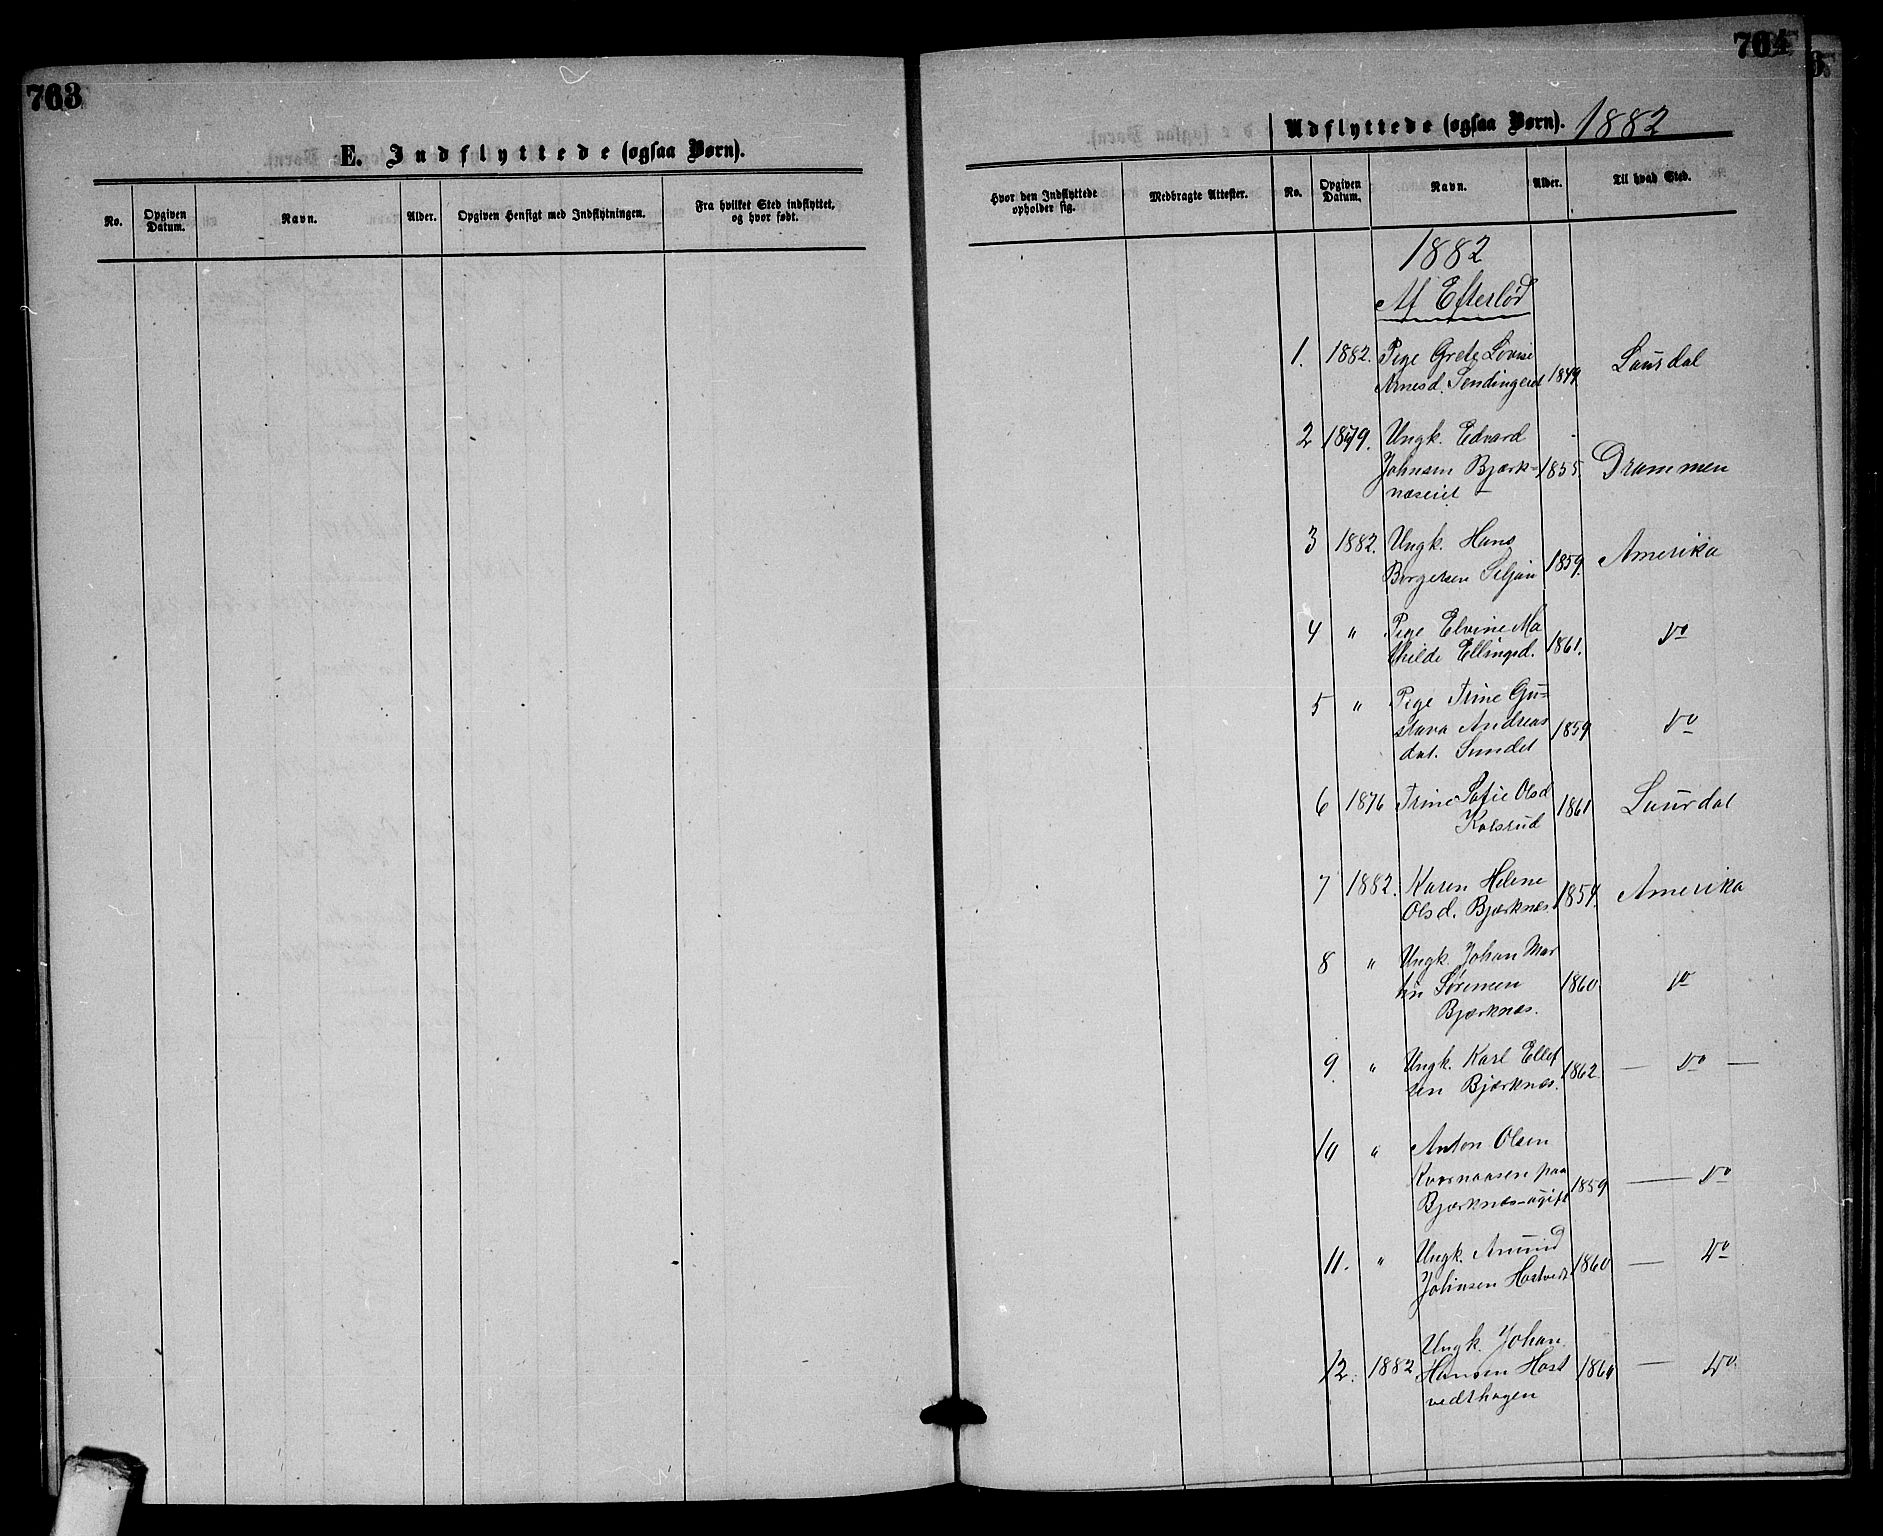 763
E. Indflyttede (ogsaa Børn).
No.
Opgiven Datum.
Navn.
Alder.
Opgiven Hensigt med Indflytningen.
Fra hvilket Sted indflyttet, og hvor født.
764
Udflyttede (ogsaa Børn). 1882
Hvor den Indflyttede opholder sig.
Medbragte Attester.
No.
Opgiven Datum.
Navn.
Alder.
Til hvad Sted.
1882
Af Efterlød
1. 1882. Pige Grete Lovise
Arnesd. Sendingeret 1849 Laurdal
2 1879. Ungk. Edvard
Johnsen Bjærk- 1855. Drammen
næseiet
3 1882. Ungk. Hans
Borgersen Seljan 1859. Amerika
4 " Pige Elvine Ma
thilde Ellingsd. 1861. Do
5 " Pige Trine Gu-
stava Andreas 1859 Do
dat. Sundet
6 1876 Trine Sofie Olsd 1861 Laurdal
Kolsrud
7 1882. Karen Helene
Olsd. Bjærknæs 1854. Amerika
8 " Ungk. Johan Mar
tin Sørensen 1860 Do
Bjærknæs.
9. " Ungk. Karl Ellef
sen Bjærknæs. 1862 — Do —
10 " Anton Olsen
Kvernaasen paa
Bjærknæs-ugift 1859 — Do
11. " Ungk. Amund
Johnsen Hostvedt 1860 — Do
Ungk. Johan
12. 1882 Hansen Host 1860 — Do
vedthagen